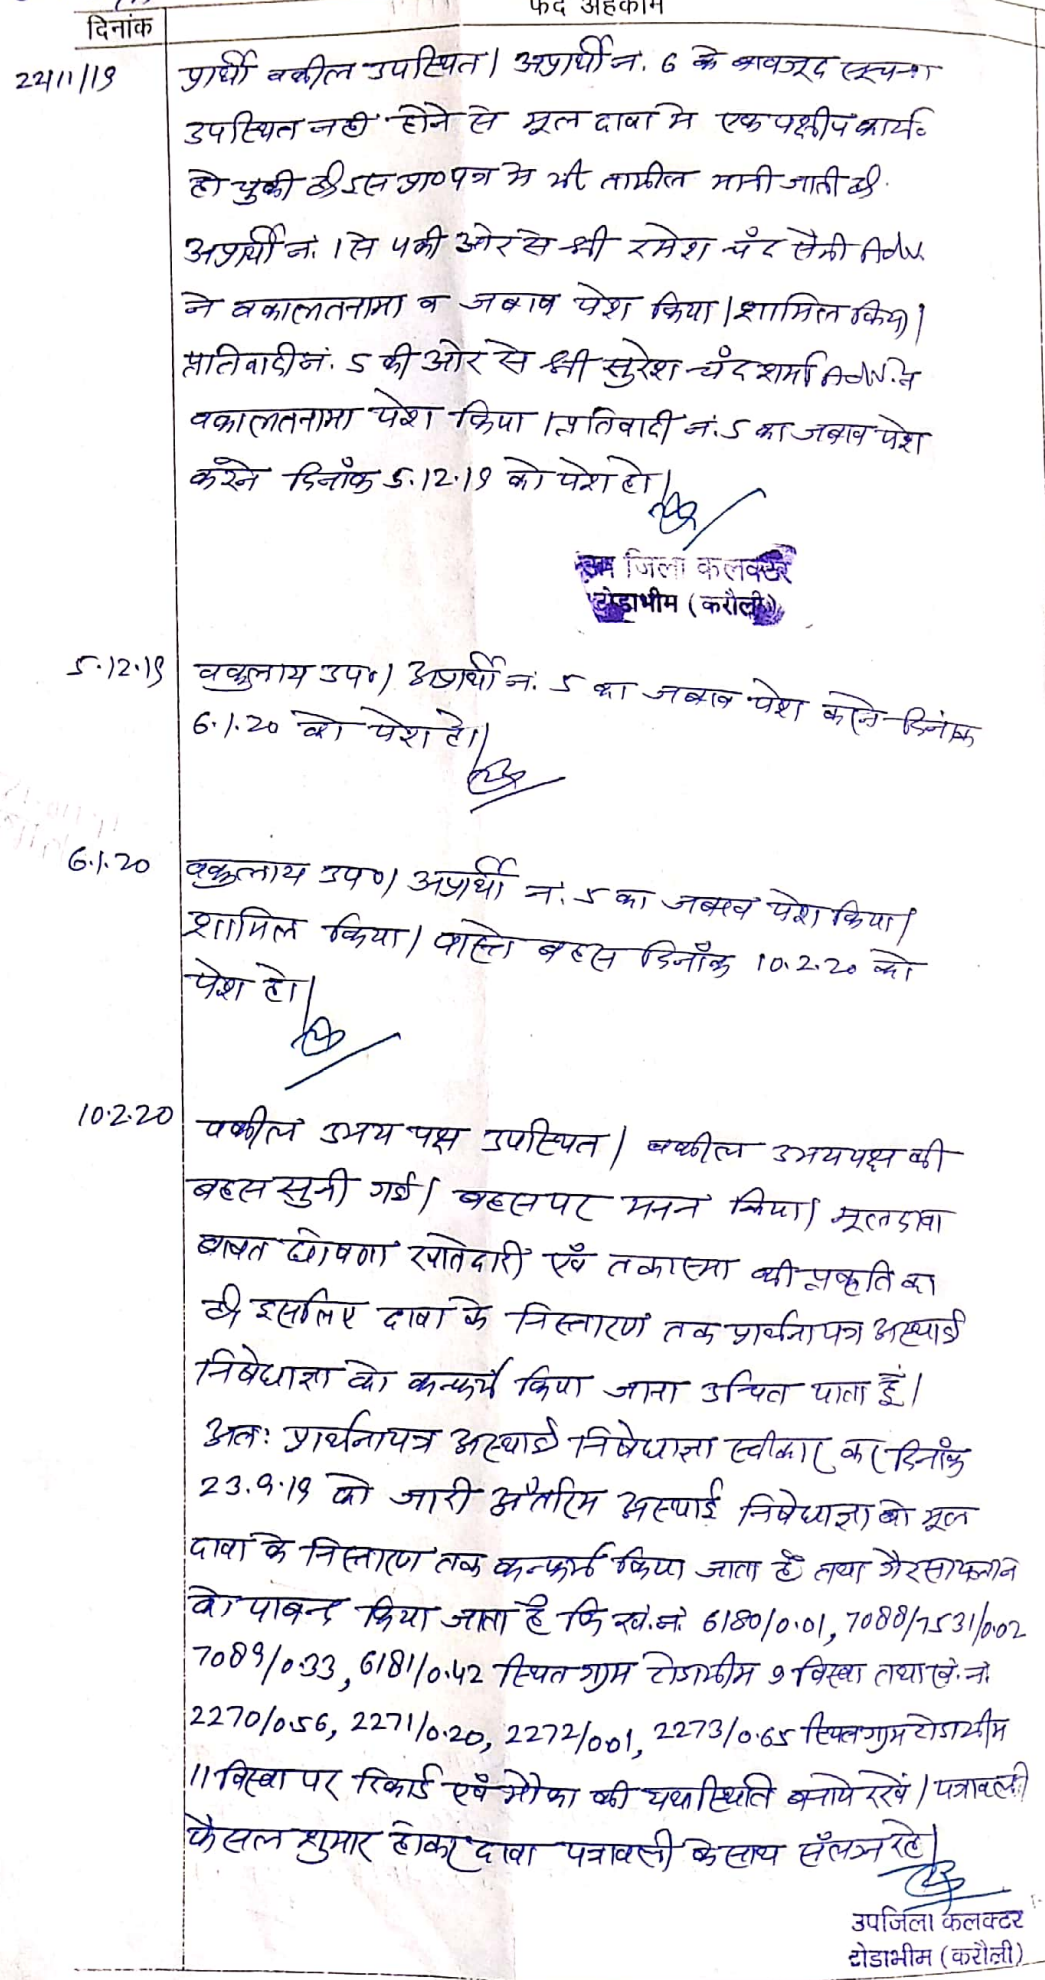 फर्द अहकाम
दिनांक
22/11/19 प्रार्थी वकील उपस्थित। अप्रार्थी नं. 6 के बावजूद सूचना
उपस्थित नही होने से मूल दावा मे एक पक्षीय कार्य.
हो चुकी है। इस प्रा०पत्र मे भी तामील मानी जाती है.
अप्रार्थी नं. 1 से 4 की ओर से श्री रमेश चंद सैनी Adv.
ने वकालतनामा व जबाव पेश किया। शामिल किया।
प्रतिवादी नं. 5 की ओर से श्री सुरेश चंद शर्मा Adv. ने
वकालतनामा पेश किया। प्रतिवादी नं. 5 का जबाव पेश
करने दिनाँक 5.12.19 को पेश हो।
उप जिला कलक्टर
टोडाभीम (करौली)
5.12.19 वकुलाय उप०। अप्रार्थी नं. 5 का जबाव पेश करने दिनांक
6.1.20 को पेश हो।
6.1.20 वकुलाय उप०। अप्रार्थी नं. 5 का जबाव पेश किया।
शामिल किया। वास्ते बहस दिनाँक 10.2.20 को
पेश हो।
10.2.20 वकील उभय पक्ष उपस्थित। वकील उभयपक्ष की
बहस सुनी गई। बहस पर मनन किया। मूल दावा
बाबत घोषणा खातेदारी एवँ तकास्मा की प्रकृति का
है इसलिए दावा के निस्तारण तक प्रार्थनापत्र अस्थाई
निषेधाज्ञा को कन्फर्म किया जाना उचित पाता हूँ।
अतः प्रार्थनापत्र अस्थाई निषेधाज्ञा स्वीकार कर दिनाँक
23.9.19 को जारी अंतरिम अस्थाई निषेधाज्ञा को मूल
दावा के निस्तारण तक कन्फर्म किया जाता है तथा गैरसायलान
को पाबन्द किया जाता है कि ख.नं. 6180/0.01, 7088/7531/0.02
7089/0.33, 6181/0.42 स्थित ग्राम टोडाभीम 9 विस्वा तथा ख.नं.
2270/0.56, 2271/0.20, 2272/0.01, 2273/0.65 स्थित ग्राम टोडाभीम
11 विस्वा पर रिकार्ड एवँ मौका की यथास्थिति बनाये रखें। पत्रावली
फैसल शुमार होकर दावा पत्रावली के साथ सँलग्न रहे।
उपजिला कलक्टर
टोडाभीम (करौली)